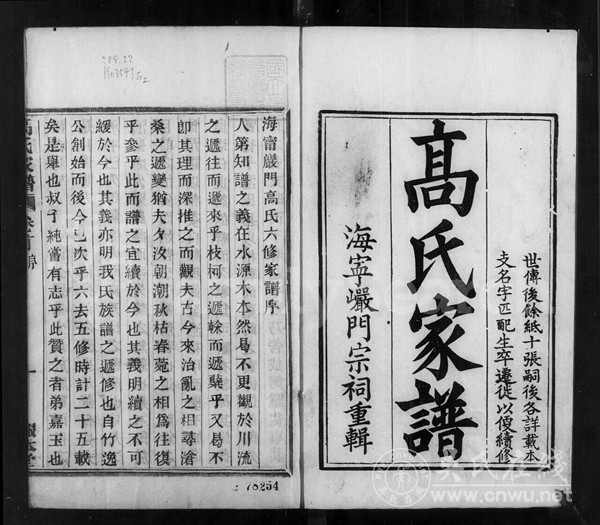 世傳後餘紙十張嗣後各詳載本
支名字匹配生卒遷徙以便續修
髙氏家譜
海寧巖門宗祠重輯
海甯巖門高氏六修家譜序
人第知譜之義在水源木本然曷不更觀於川流
之遞往而遞來乎枝柯之遞榦而遞櫱乎又曷不
卽其理而深推之而觀夫古今來治亂之相尋滄
桑之遞變猶夫夕汐朝潮秋枯春菀之相爲往復
乎參乎此而譜之宜續於今也其義明續之不可
緩於今也其義亦明我氏族譜之遞修也自竹逸
公創始而後今已次乎六去五修時計二十五載
矣是舉也叔子純嘗有志乎此贊之者弟嘉玉也
高氏家譜
一
78254
www.cnwu.net